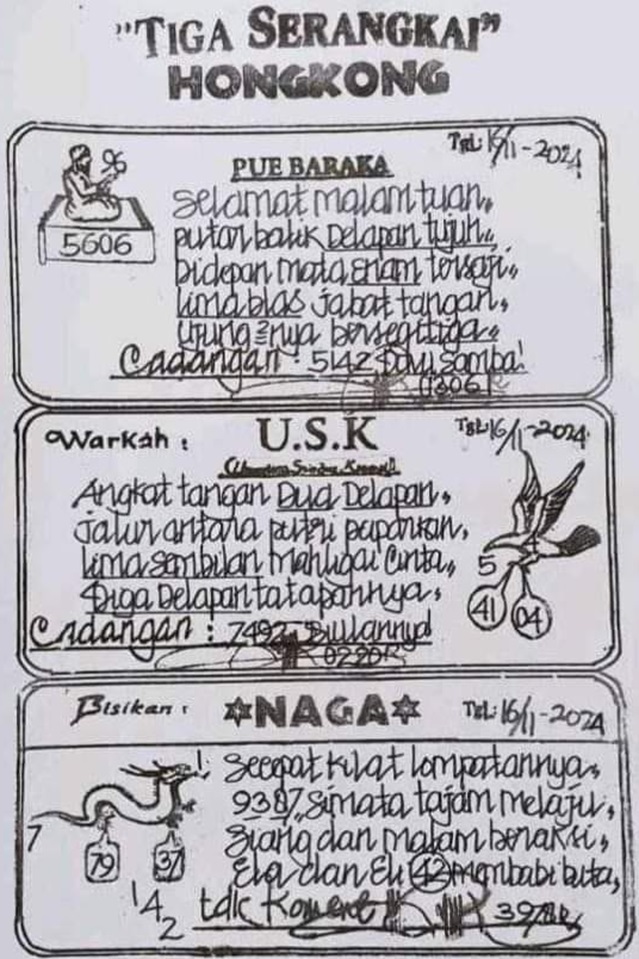 "TIGA SERANGKAI"
HONGKONG
PUE BARAKA
TGL: 16/11-2024
96
5606
Selamat malam tuan,,
putar balik Delapan tujuh,,
Didepan mata enam tersaji,,
lima blas jabat tangan,
Ujung nya bersegitiga,,
Cadangan : 5142
1306
Warkah :
U.S.K
TGL: 16/11-2024
Angkat tangan Dua Delapan,
jalur antara putri
lima sambilan mahligai cinta,,
Diga Delapan tatapannya,
5
41
04
Cadangan : 7492
Bisikan :
NAGA
TGL: 16/11-2024
Secepat kilat lompatannya,
9387, Simata tajam melaju,
Siang dan malam beraksi,
Ela dan Eli 42 membabi buta,
7
79
37
1
4
2
tdk